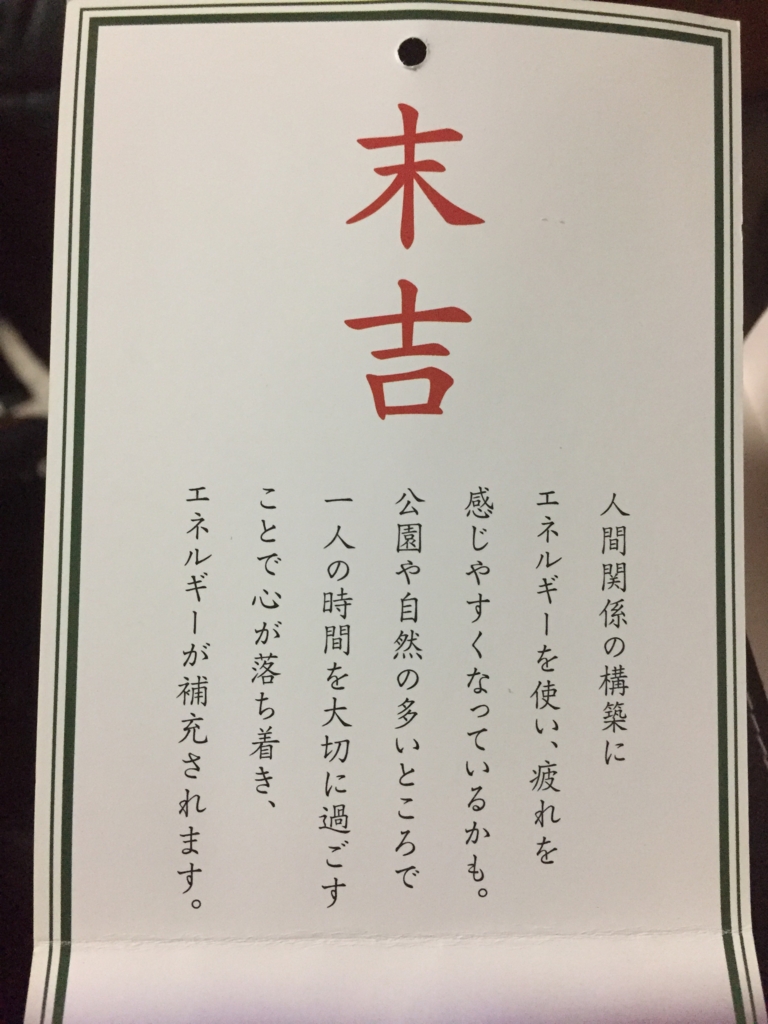 末吉
人間関係の構築に
エネルギーを使い、疲れを
感じやすくなっているかも。
公園や自然の多いところで
一人の時間を大切に過ごす
ことで心が落ち着き、
エネルギーが補充されます。